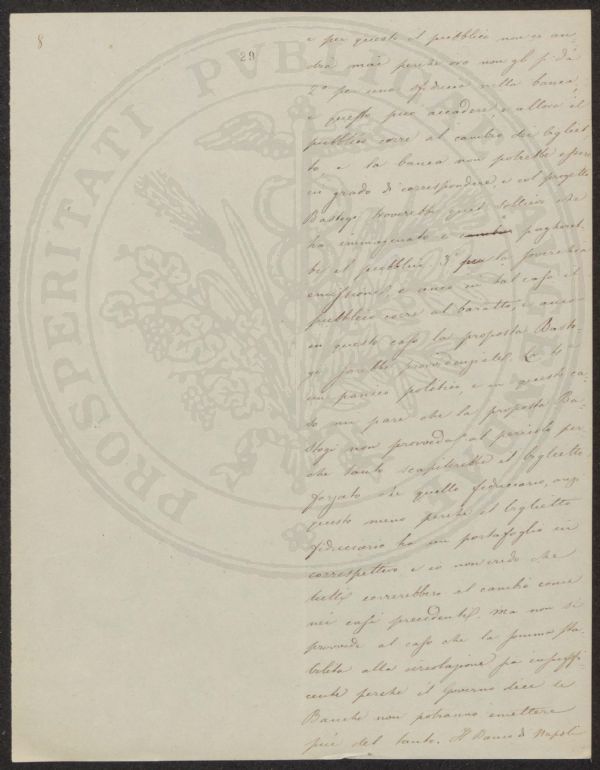 8
29
PROSPERITATI PVBLICAE
e per questo il pubblico non ci an
drà mai perché oro non gli si dà
2º per una sfiducia nella banca,
e questo può accadere, e allora il
pubblico corre al cambio dei bigliet
to e la banca non potrebbe essere
in grado di corrispondere, e col progetto
Bastogi troverebbe quel sollievo che
ha immaginato e pagherebbe
be il pubblico. 3º per la soverchia
emissione, e anco in tal caso il
pubblico corre al baratto, e anco
in questo caso la proposta Basto-
gi sarebbe provvidenziale. 4º
un panico politico, e in questo ca-
so mi pare che la proposta Ba-
stogi non provveda al pericolo per
che tanto scapiterebbe il biglietto
forzato che quello fiduciario, anzi
questo meno perché il biglietto
fiduciario ha un portafoglio in
correspettivo e io non credo che
tutti correrebbero al cambio come
nei casi precedenti. Ma non si
provvede al caso che la somma sta-
bilita alla circolazione sia insuffi-
cente perché il Governo dice le
Banche non potranno emettere
più del tanto. Il Banco di Napoli